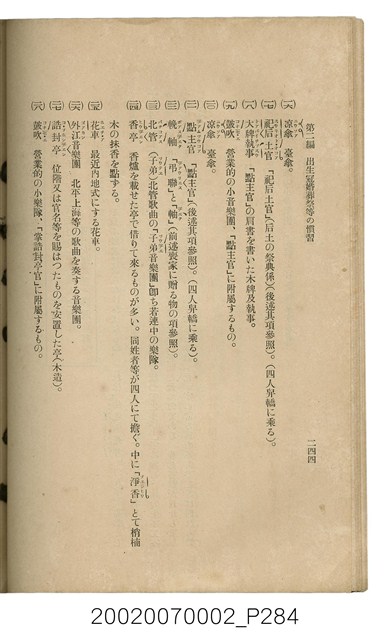 第二編　出生冠婚葬祭等の慣習　二四四
涼傘　臺傘。
祀后土官　「祀后土官」（后土の祭典係）（後述其項參照）。（四人舁轎に乘る）。
大牌執事　「點主官」の肩書を書いた木牌及執事。
鼓吹　營業的の小音樂團、「點主官」に附屬するもの。
涼傘　臺傘。
點主官　「點主官」（後述其項參照）。（四人舁轎に乘る）。
輓軸　「弔聯」と「軸」（前述喪家に贈る物の項參照）。
北管　（子弟）北管歌曲の「子弟音樂團」卽ち若連中の樂隊。
香亭　香爐を載せた亭で借りて來るものが多い。同姓者等が四人にて擔ぐ。中に「淨香」とて楠
木の抹香を點する。
花車　最近內地式にする花車。
外江音樂團　北平上海等の歌曲を奏する音樂團。
誥封亭　位階又は官名等を賜はつたものを安置した亭（木造）。
鼓吹　營業的の小樂隊、「掌誥封亭官」に附屬するもの。
20020070002_P284